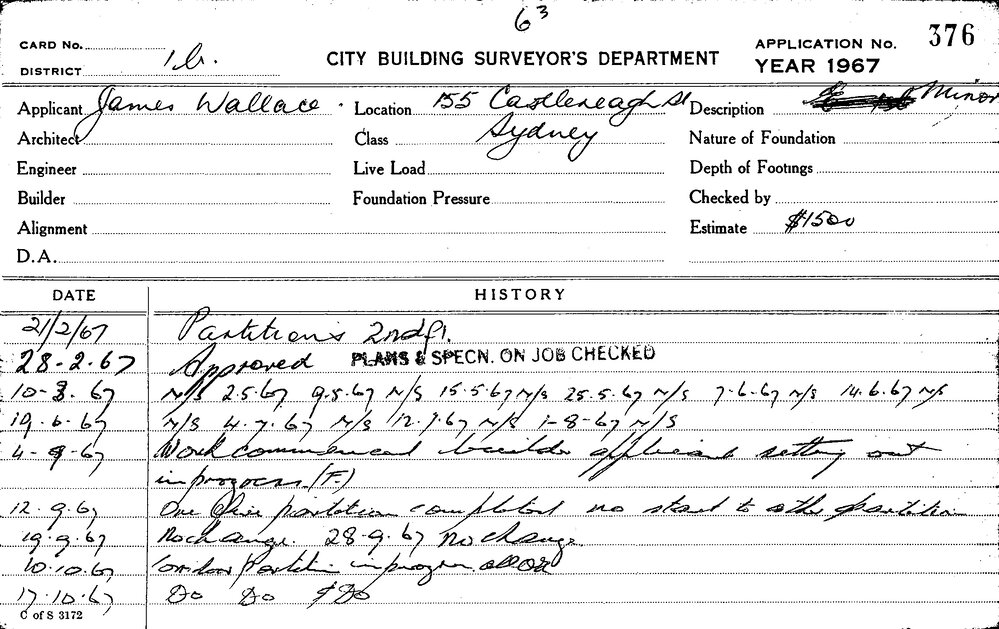 63
376
CARD No.
DISTRICT 1b.
CITY BUILDING SURVEYOR'S DEPARTMENT
APPLICATION No.
YEAR 1967
Applicant James Wallace. Location 155 Castlereagh St Description Minor
Architect Class Sydney Nature of Foundation
Engineer Live Load Depth of Footings
Builder Foundation Pressure Checked by
Alignment Estimate $1500
D.A.
DATE HISTORY
21/2/67 Partitions 2nd fl.
28-2.67 Approved PLANS & SPECN. ON JOB CHECKED
10-3.67 N/S 2.5.67 9.5.67 N/S 15.5.67 N/S 25.5.67 N/S 7.6.67 N/S 14.6.67 N/S
19.6.67 N/S 4.7.67 N/S 12.7.67 N/S 1-8-67 N/S
4-9-67 Work commenced builder applicant setting out
in progress (F.)
12.9.67 One Office partition completed no start to other partition
19.9.67 No change. 28.9.67 No change
10.10.67 Corridor Partition in progress all OK
17.10.67 Do Do & Do
C of S 3172